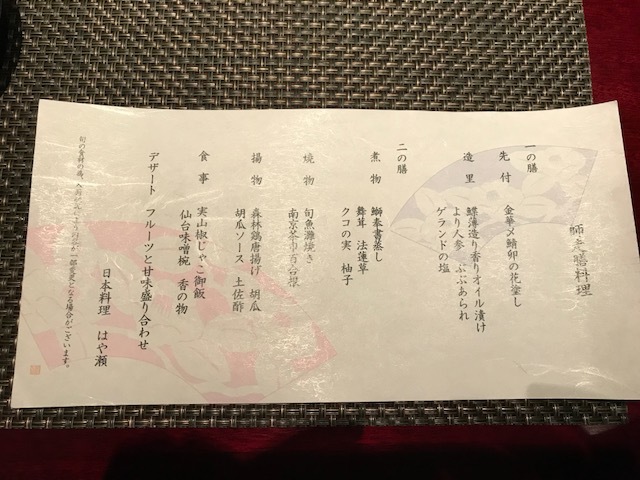 膳料理
一の膳
先付 金華〆鯖卯の花塗し
造里 鰈薄造り香りオイル漬け
より人参 ぶぶあられ
ゲランドの塩
二の膳
煮物 鰤奉書蒸し
舞茸 法蓮草
クコの実 柚子
焼物 旬魚灘焼き
南京茶巾 百合根
揚物 森林鶏唐揚げ 胡瓜
胡瓜ソース 土佐酢
食事 実山椒じゃこ御飯
仙台味噌椀 香の物
デザート フルーツと甘味盛り合わせ
日本料理 はや瀬
旬の食材の為、入荷が 一部変更となる場合がございます。